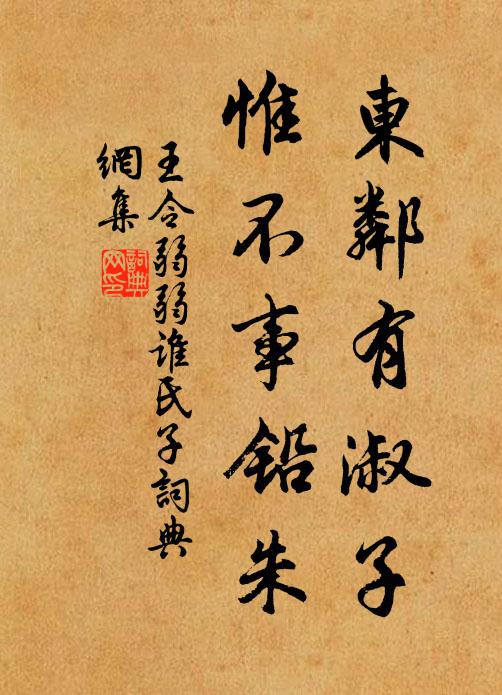 東鄰有淑子
惟不事鉛朱
王令弱弱誰氏子詞典
網集
詞典
网印